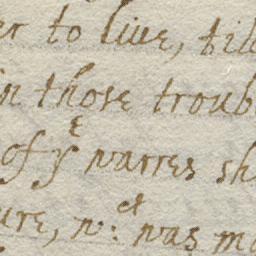 er to liue, till
in those troub
of yᵉ warres sh
ure, wᶜᵗ: was mo